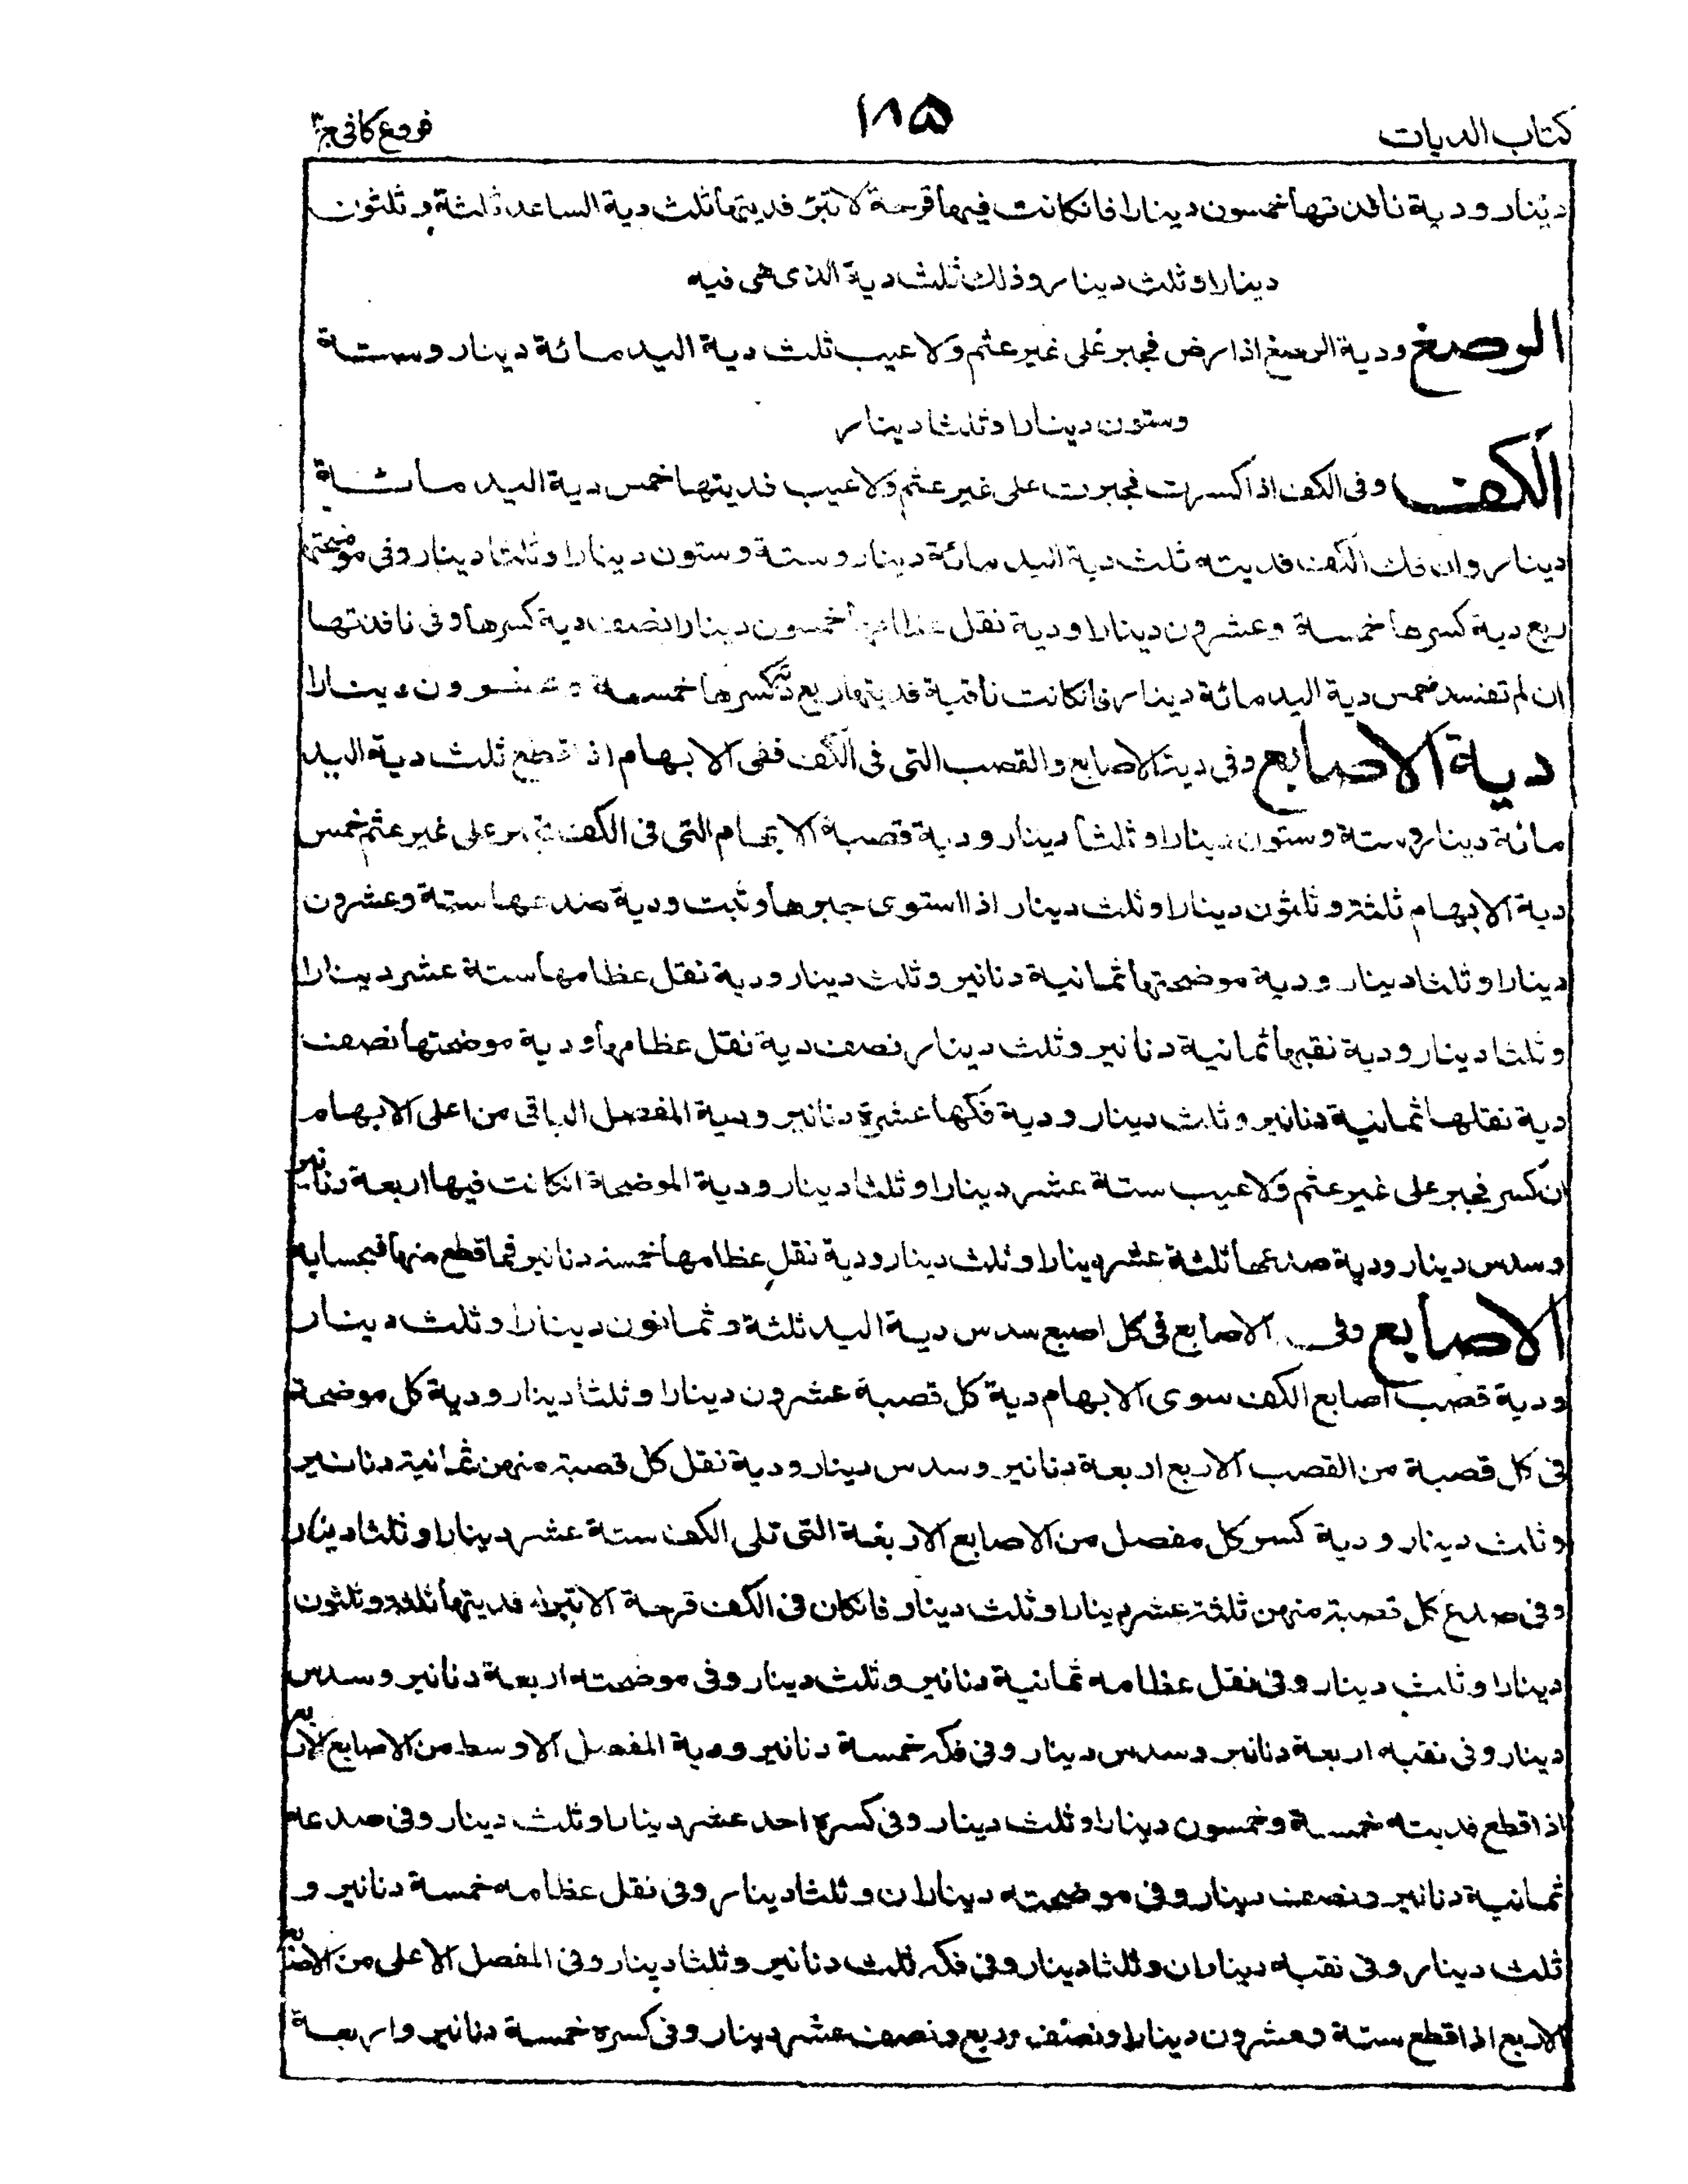 كتاب الديات
١٨۵
فروع كافى ج٣
دينار ودية نافذتها خمسون دينارا فانكانت فيها قرحة لا تبرء فديتها ثلث دية الساعد ثلثة وثلثون
دينارا وثلث دينار وذلك ثلث دية الذى هى فيه
الرصغ ودية الرصغ اذا رض فجبر على غير عثم ولا عيب ثلث دية اليد مائة دينار وستة
وستون دينارا وثلثا دينار
الكف وفى الكف اذا كسرت فجبرت على غير عثم ولا عيب فديتها خمس دية اليد مائة
دينار وان فك الكف فديته ثلث دية اليد مائة دينار وستة وستون دينارا وثلثا دينار وفى موضحتها
ربع دية كسرها خمسة وعشرون دينارا ودية نقل عظامها خمسون دينارا نصف دية كسرها وفى نافذتها
ان لم تفسد خمس دية اليد مائة دينار فانكانت ناقبة فديتها ربع دية كسرها خمسة وعشرون دينارا
دية الاصابع وفى دية الاصابع والقصب التى فى الكف ففى الابهام اذا قطع ثلث دية اليد
مائة دينار وستة وستون دينارا وثلثا دينار ودية قصبة الابهام التى فى الكف تجبر على غير عثم خمس
دية الابهام ثلثة وثلثون دينارا وثلث دينار اذا استوى جبرها وثبت ودية صدعها ستة وعشرون
دينارا وثلثا دينار ودية موضحتها ثمانية دنانير وثلث دينار ودية نقل عظامها ستة عشر دينارا
وثلثا دينار ودية نقبها ثمانية دنانير وثلث دينار نصف دية نقل عظامها ودية موضحتها نصف
دية نقلها ثمانية دنانير وثلث دينار ودية فكها عشرة دنانير ودية المفصل الباقى من اعلى الابهام
ان كسر فجبر على غير عثم ولا عيب ستة عشر دينارا وثلثا دينار ودية الموضحة انكانت فيها اربعة دنانير
وسدس دينار ودية صدعها ثلثة عشر دينارا وثلث دينار ودية نقل عظامها خمسة دنانير فما قطع منها فبحسابه
الاصابع وفى الاصابع فى كل اصبع سدس دية اليد ثلثة وثمانون دينارا وثلث دينار
ودية قصب اصابع الكف سوى الابهام دية كل قصبة عشرون دينارا وثلثا دينار ودية كل موضحة
فى كل قصبة من القصب الاربع اربعة دنانير وسدس دينار ودية نقل كل قصبة منهن ثمانية دنانير
وثلث دينار ودية كسر كل مفصل من الاصابع الاربعة التى تلى الكف ستة عشر دينارا وثلثا دينار
وفى صدع كل قصبة منهن ثلثة عشر دينارا وثلث دينار فانكان فى الكف قرحة لا تبرء فديتها ثلثة وثلثون
دينارا وثلث دينار وفى نقل عظامه ثمانية دنانير وثلث دينار وفى موضحته اربعة دنانير وسدس
دينار وفى نقبه اربعة دنانير وسدس دينار وفى فكه خمسة دنانير ودية المفصل الاوسط من الاصابع الاربع
اذا قطع فديته خمسة وخمسون دينارا وثلث دينار وفى كسره احد عشر دينارا وثلث دينار وفى صدعه
ثمانية دنانير ونصف دينار وفى موضحته ديناران وثلثا دينار وفى نقل عظامه خمسة دنانير و
ثلث دينار وفى نقبه ديناران وثلثا دينار وفى فكه ثلث دنانير وثلثا دينار وفى المفصل الاعلى من الاصابع
الاربع اذا قطع ستة وعشرون دينارا ونصف وربع ونصف عشر دينار وفى كسره خمسة دنانير واربعة